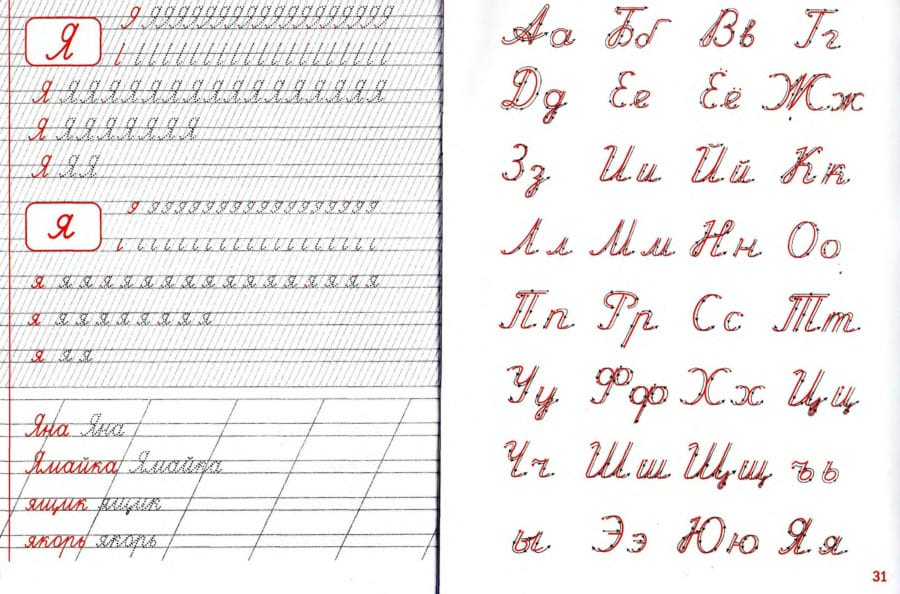 Я
Я Я Я Я Я Я Я Я Я Я Я Я Я Я Я Я
Я Я Я Я Я Я Я Я
Я Я Я
я
я я я я я я я я я я я я я я я я я
я я я я я я я я я
я я я
Яна Яна
Ямайка Ямайка
ящик ящик
якорь якорь
Аа Бб Вв Гг
Дд Ее Ёё Жж
Зз Ии Йй Кк
Лл Мм Нн Оо
Пп Рр Сс Тт
Уу Фф Хх Цц
Чч Шш Щщ ъь
ы Ээ Юю Яя
31